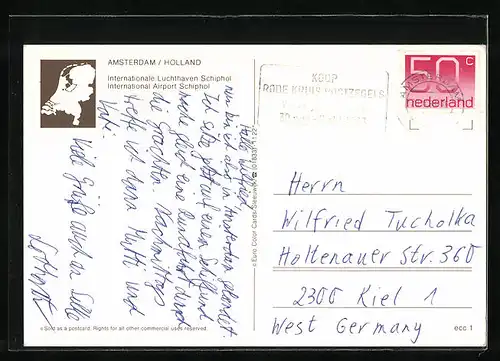 AMSTERDAM / HOLLAND
Internationale Luchthaven Schiphol
International Airport Schiphol
KOOP
RODE KRUIS POSTZEGELS
50 c
nederland
Hallo Wilfried
nun bin ich also in Amsterdam gelandet.
Ich sitze jetzt auf einem Schiff und
mache gleich eine Rundfahrt durch
die Grachten. Nachmittags
treffe ich dann Mutti und
Vati.
Viele Grüße auch an Silke
© Euro Color Cards
Herrn
Wilfried Tucholka
Holtenauer Str. 360
2300 Kiel 1
West Germany
Sold as a postcard. Rights for all other commercial uses reserved.
ecc 1